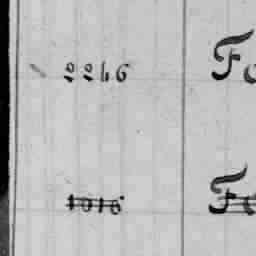 2246 Fo
1016 Fo